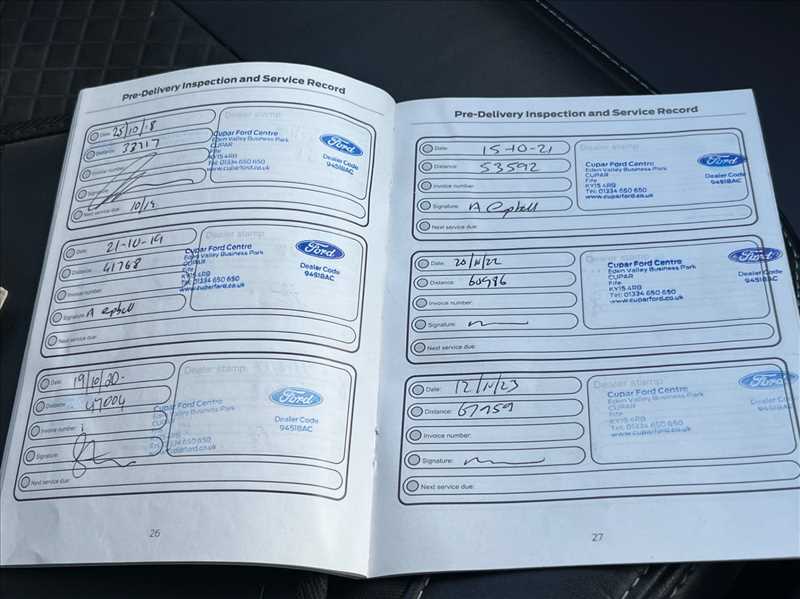 Pre-Delivery Inspection and Service Record
Dealer stamp:
Date: 25/10/18
Distance: 33717
Invoice number:
Signature:
Next service due: 10/19
Cupar Ford Centre
Eden Valley Business Park
CUPAR
Fife
KY15 4RB
Tel: 01334 650 650
www.cuparford.co.uk
Ford
Dealer Code
94518AC
Date: 21-10-19
Distance: 41768
Invoice number:
Signature: A
Next service due:
Cupar Ford Centre
Eden Valley Business Park
CUPAR
Fife
KY15 4RB
Tel: 01334 650 650
www.cuparford.co.uk
Ford
Dealer Code
94518AC
Date: 19/10/20-
Distance: 47004
Invoice number:
Signature:
Next service due:
Dealer stamp:
Cupar Ford Centre
Eden Valley Business Park
CUPAR
Tel: 01334 650 650
www.cuparford.co.uk
Ford
Dealer Code
94518AC
26
Pre-Delivery Inspection and Service Record
Date: 15-10-21
Distance: 53592
Invoice number:
Signature: A
Next service due:
Dealer stamp:
Cupar Ford Centre
Eden Valley Business Park
CUPAR
Fife
KY15 4RB
Tel: 01334 650 650
www.cuparford.co.uk
Ford
Dealer Code
94518AC
Date:
Distance: 60986
Invoice number:
Signature:
Next service due:
Cupar Ford Centre
Eden Valley Business Park
CUPAR
Fife
KY15 4RB
Tel: 01334 650 650
www.cuparford.co.uk
Ford
Dealer Code
94518AC
Date:
Distance:
Invoice number:
Signature:
Next service due:
Dealer stamp:
Cupar Ford Centre
Eden Valley Business Park
CUPAR
Fife
KY15 4RB
Tel: 01334 650 650
www.cuparford.co.uk
Ford
Dealer Code
94518AC
27